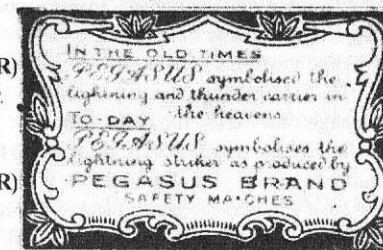 R)
IN THE OLD TIMES
PEGASUS symbolised the
lightning and thunder carrier in
the heavens
TO-DAY
PEGASUS symbolises the
lightning striker as produced by
R)
PEGASUS BRAND
SAFETY MATCHES